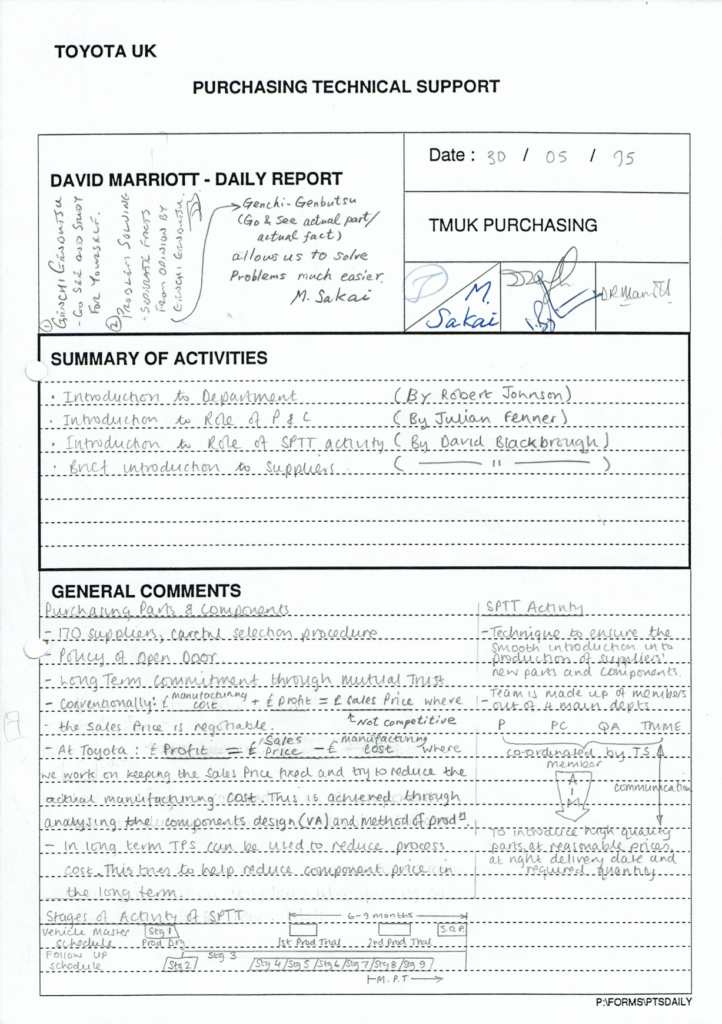 TOYOTA UK
PURCHASING TECHNICAL SUPPORT
DAVID MARRIOTT - DAILY REPORT
Date : 30 / 05 / 95
TMUK PURCHASING
① GENCHI GENBUTSU
- GO SEE AND STUDY
FOR YOURSELF.
② PROBLEM SOLVING
- SEPARATE FACTS
FROM OPINION BY
GENCHI GENBUTSU.
Genchi-Genbutsu
(Go & See actual part/
actual fact)
allows us to solve
Problems much easier.
M. Sakai
M.
Sakai
DRMarriott
SUMMARY OF ACTIVITIES
· Introduction to Department (By Robert Johnson)
· Introduction to Role of P & C (By Julian Fenner)
· Introduction to Role of SPTT activity (By David Blackbrough)
· Brief introduction to Suppliers. ( —— " —— )
GENERAL COMMENTS
Purchasing Parts & Components
- 170 suppliers, careful selection procedure
- Policy of Open Door
- Long Term commitment through mutual Trust
- Conventionally: £ manufacturing cost + £ Profit = £ Sales Price where
- the Sales Price is negotiable. Not competitive
- At Toyota : £ Profit = £ Sales Price - £ manufacturing cost where
we work on keeping the Sales Price fixed and try to reduce the
actual manufacturing cost. This is achieved through
analysing the components design (VA) and method of prodⁿ.
- In long term TPS can be used to reduce process
cost. This tries to help reduce component price in
the long term.
SPTT Activity
- Technique to ensure the
smooth introduction into
production of suppliers'
new parts and components.
Team is made up of members
- out of 4 main depts.
P PC QA TMME
co-ordinated by TS
member
communication
A
I
M
To introduce high quality
parts, at reasonable prices,
at right delivery date and
required quantity
Stages of Activity of SPTT
6-9 months
Vehicle Master
schedule
Stg 1
Prod Drg
1st Prod Trial
2nd Prod Trial
S.O.P.
Follow Up
schedule
Stg 2
Stg 3
Stg 4/Stg 5/Stg 6/Stg 7/Stg 8/Stg 9
M.P.T
P:\FORMS\PTSDAILY